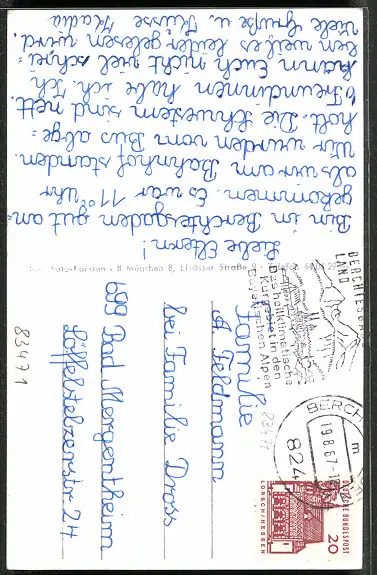 Liebe Eltern!
Bin in Berchtesgaden gut an=
gekommen. Es war 11⁰⁰ Uhr
als wir am Bahnhof standen.
Wir wurden vom Bus abge=
holt. Die Schwestern sind nett.
6 Freundinnen habe ich. Ich
kann Euch nicht viel schrei=
ben weil es leider gelesen wird.
Viele Grüße u. Küsse Nadia
Foto-Karstan · 8 München 8, Elsässer Straße
BERCHTESGA
LAND
Das heilklimatische
Kurgebiet in den
Bayerischen Alpen
BERCH
19.8.67
824
DEUTSCHE BUNDESPOST
20
LORSCH/HESSEN
Familie
A. Feldmann
bei Familie Dross
699 Bad Mergentheim
Löffelstelzenstr 24
83471
83471